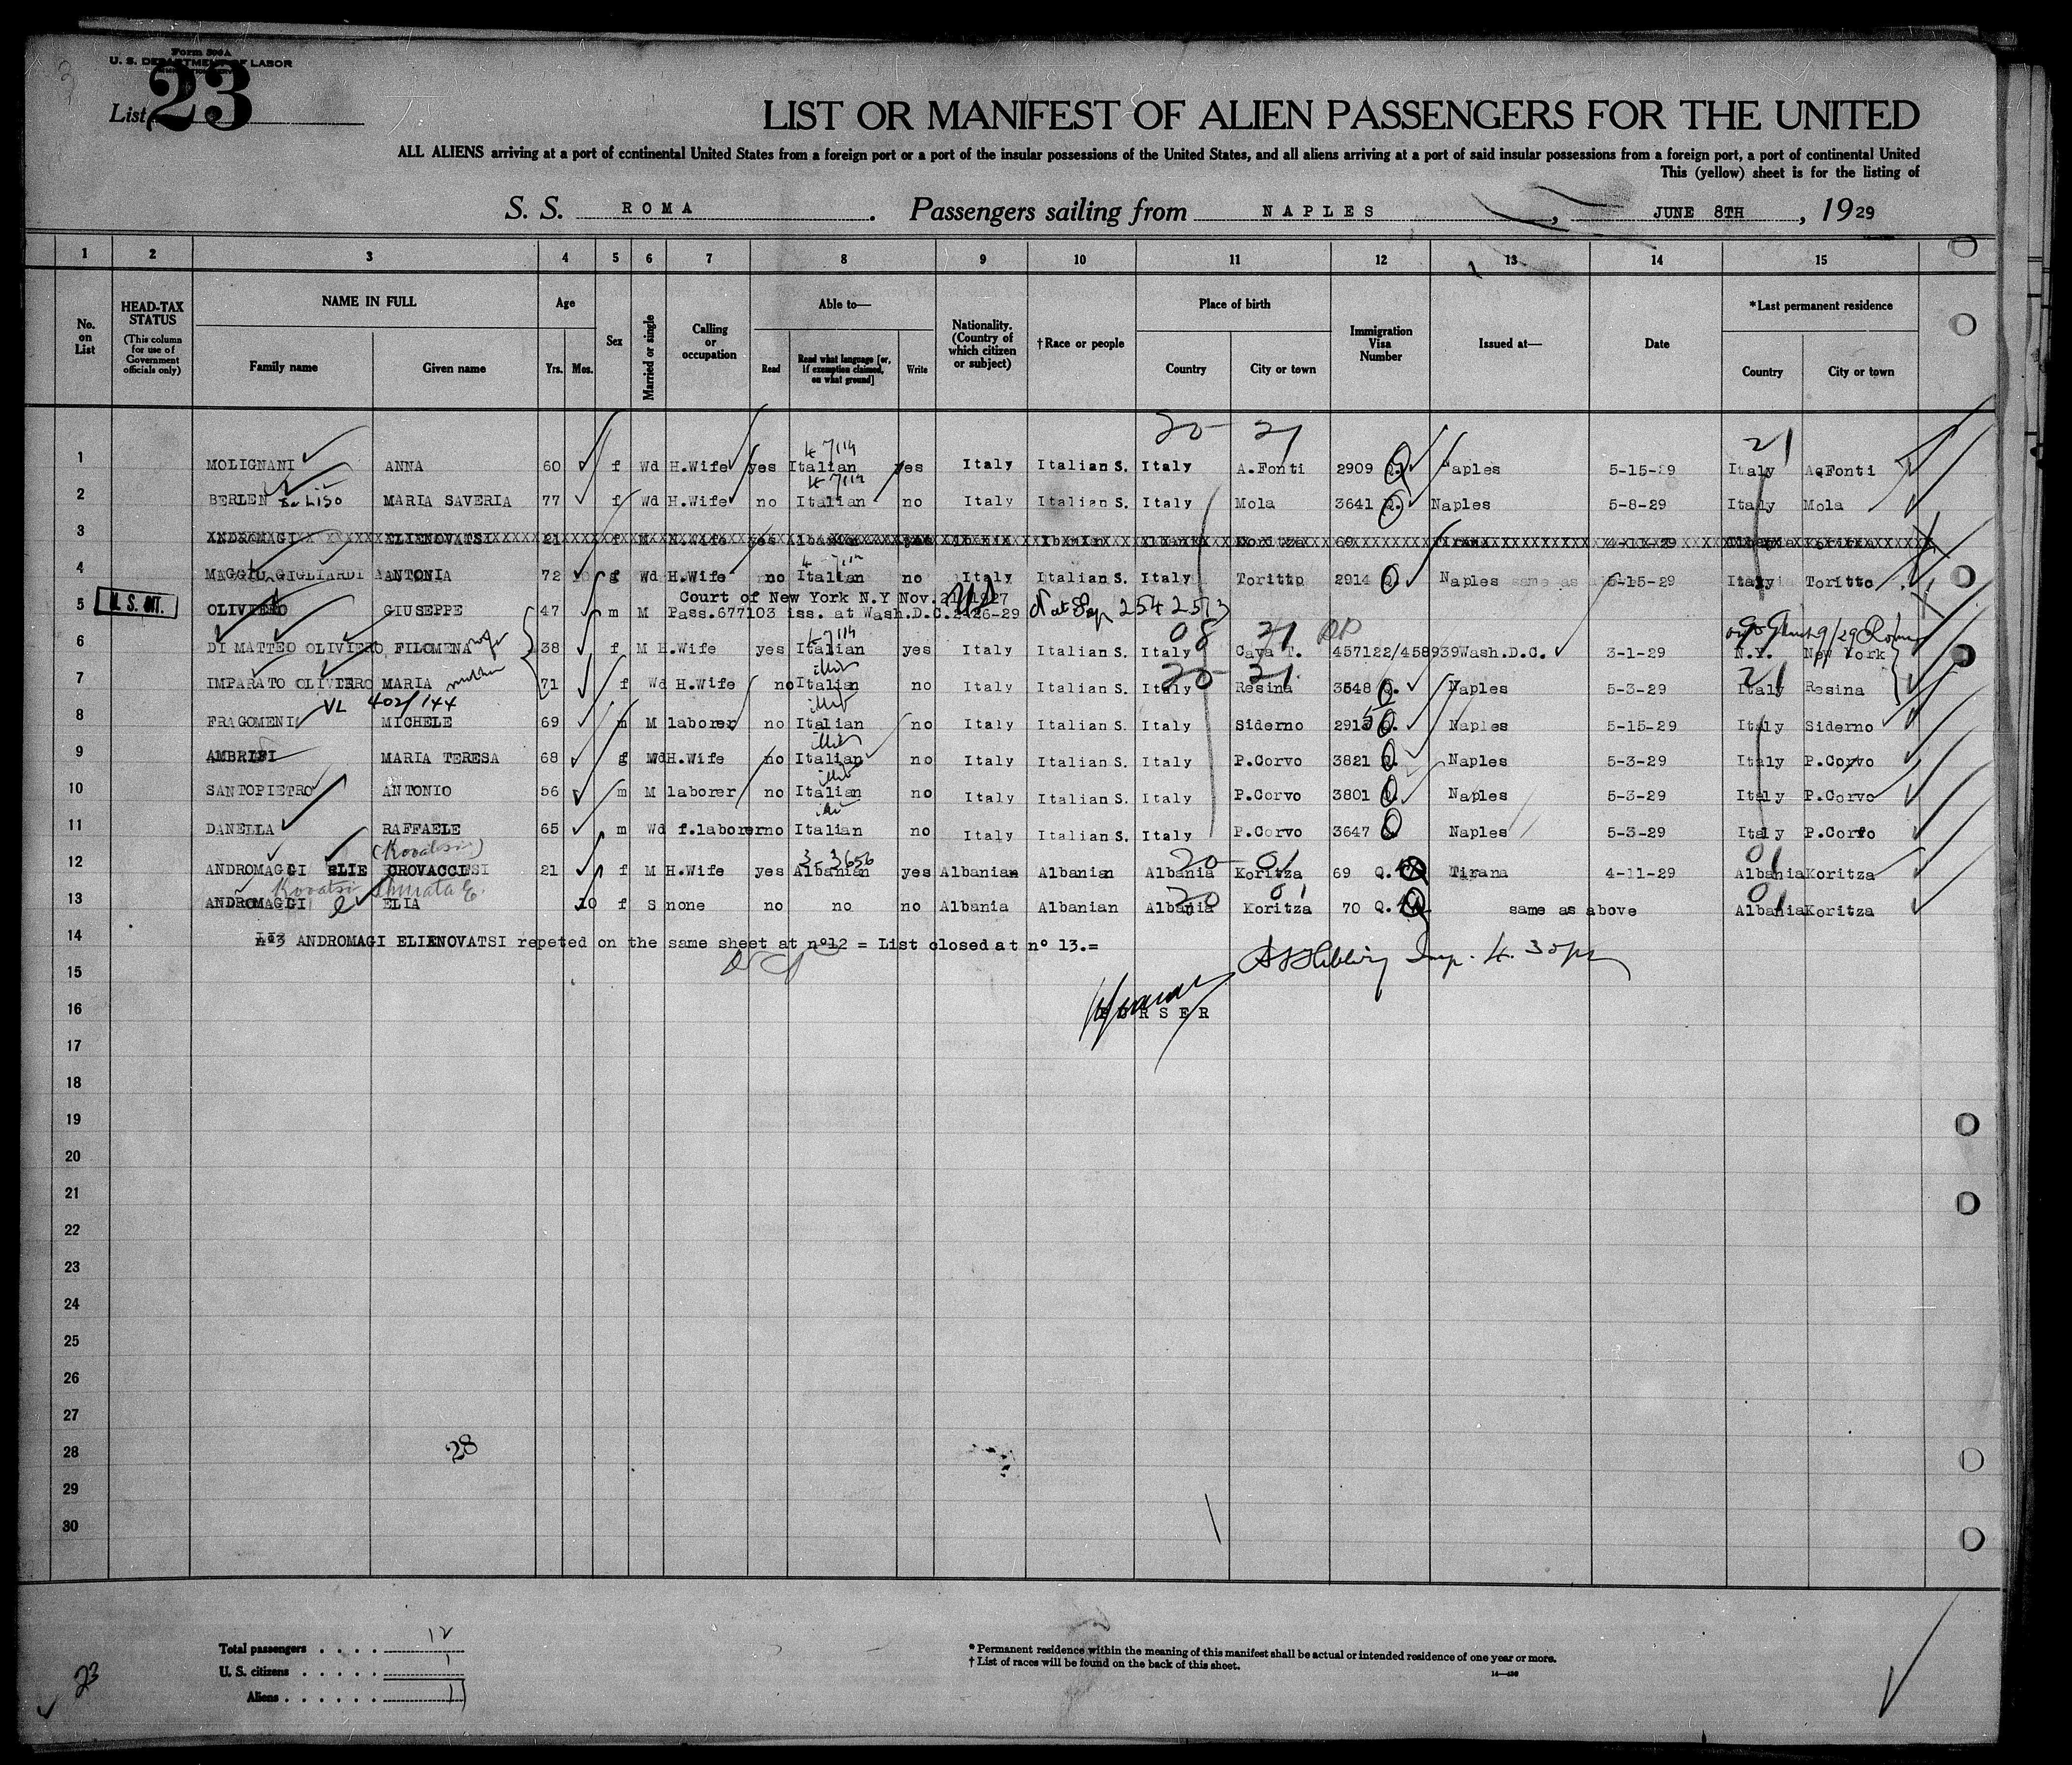 Form 500A
U. S. DEPARTMENT OF LABOR
List 23
LIST OR MANIFEST OF ALIEN PASSENGERS FOR THE UNITED
ALL ALIENS arriving at a port of continental United States from a foreign port or a port of the insular possessions of the United States, and all aliens arriving at a port of said insular possessions from a foreign port, a port of continental United
This (yellow) sheet is for the listing of
S. S. ROMA. Passengers sailing from NAPLES, JUNE 8TH, 1929
1 2 3 4 5 6 7 8 9 10 11 12 13 14 15
No. on List
HEAD-TAX STATUS
(This column for use of Government officials only)
NAME IN FULL
Family name
Given name
Age
Yrs. Mos.
Sex
Married or single
Calling or occupation
Able to—
Read
Read what language [or, if exemption claimed, on what ground]
Write
Nationality. (Country of which citizen or subject)
†Race or people
Place of birth
Country
City or town
Immigration Visa Number
Issued at—
Date
*Last permanent residence
Country
City or town
20 21 21
1 MOLIGNANI ANNA 60 f Wd H.Wife yes Italian yes Italy Italian S. Italy A.Fonti 2909 Q. Naples 5-15-29 Italy A.Fonti
2 BERLEN MARIA SAVERIA 77 f Wd H.Wife no Italian no Italy Italian S. Italy Mola 3641 Q. Naples 5-8-29 Italy Mola
3 ANDROMAGI ELIENOVATSI 21 f M H.Wife yes Albanian yes Albania Albanian Albania Koritza 69 Tirana 4-11-29 Albania Koritza
4 MAGGIO GAGLIARDI ANTONIA 72 f Wd H.Wife no Italian no Italy Italian S. Italy Toritto 2914 Q. Naples 5-15-29 Italy Toritto
Court of New York N.Y Nov.21/1927
5 U. S. CIT. OLIVIERO GIUSEPPE 47 m M Pass.677103 iss. at Wash.D.C. 2-26-29
08 21
6 DI MATTEO OLIVIERO FILOMENA wife 38 f M H.Wife yes Italian yes Italy Italian S. Italy Cava T. 457122/458939 Wash.D.C. 3-1-29 N.Y. New York
20 21 21
7 IMPARATO OLIVIERO MARIA mother 71 f Wd H.Wife no Italian no Italy Italian S. Italy Resina 3548 Q. Naples 5-3-29 Italy Resina
VL 402/144
8 FRAGOMENI MICHELE 69 m M laborer no Italian no Italy Italian S. Italy Siderno 2915 Q. Naples 5-15-29 Italy Siderno
9 MARIA TERESA 68 Wd H.Wife no Italian no Italy Italian S. Italy P.Corvo 3821 Q. Naples 5-3-29 Italy P.Corvo
10 SANTOPIETRO ANTONIO 56 m M laborer no Italian no Italy Italian S. Italy P.Corvo 3801 Q. Naples 5-3-29 Italy P.Corvo
11 DANELLA RAFFAELE 65 m Wd f.laborer no Italian no Italy Italian S. Italy P.Corvo 3647 Q. Naples 5-3-29 Italy P.Corvo
20 01 01
12 ANDROMAGGI ELIE 21 f M H.Wife yes Albanian yes Albanian Albanian Albania Koritza 69 Q. Tirana 4-11-29 Albania Koritza
Kovatsi
13 ANDROMAGGI ELIA 10 f S none no no no Albania Albanian Albania Koritza 70 Q. same as above Albania Koritza
14 n°3 ANDROMAGI ELIENOVATSI repeted on the same sheet at n°12 = List closed at n° 13.=
15
16 PURSER
17
18
19
20
21
22
23
24
25
26
27
28 28
29
30
Total passengers . . . . 12
U. S. citizens . . . . . 1
Aliens . . . . . . 11
23
* Permanent residence within the meaning of this manifest shall be actual or intended residence of one year or more.
† List of races will be found on the back of this sheet.